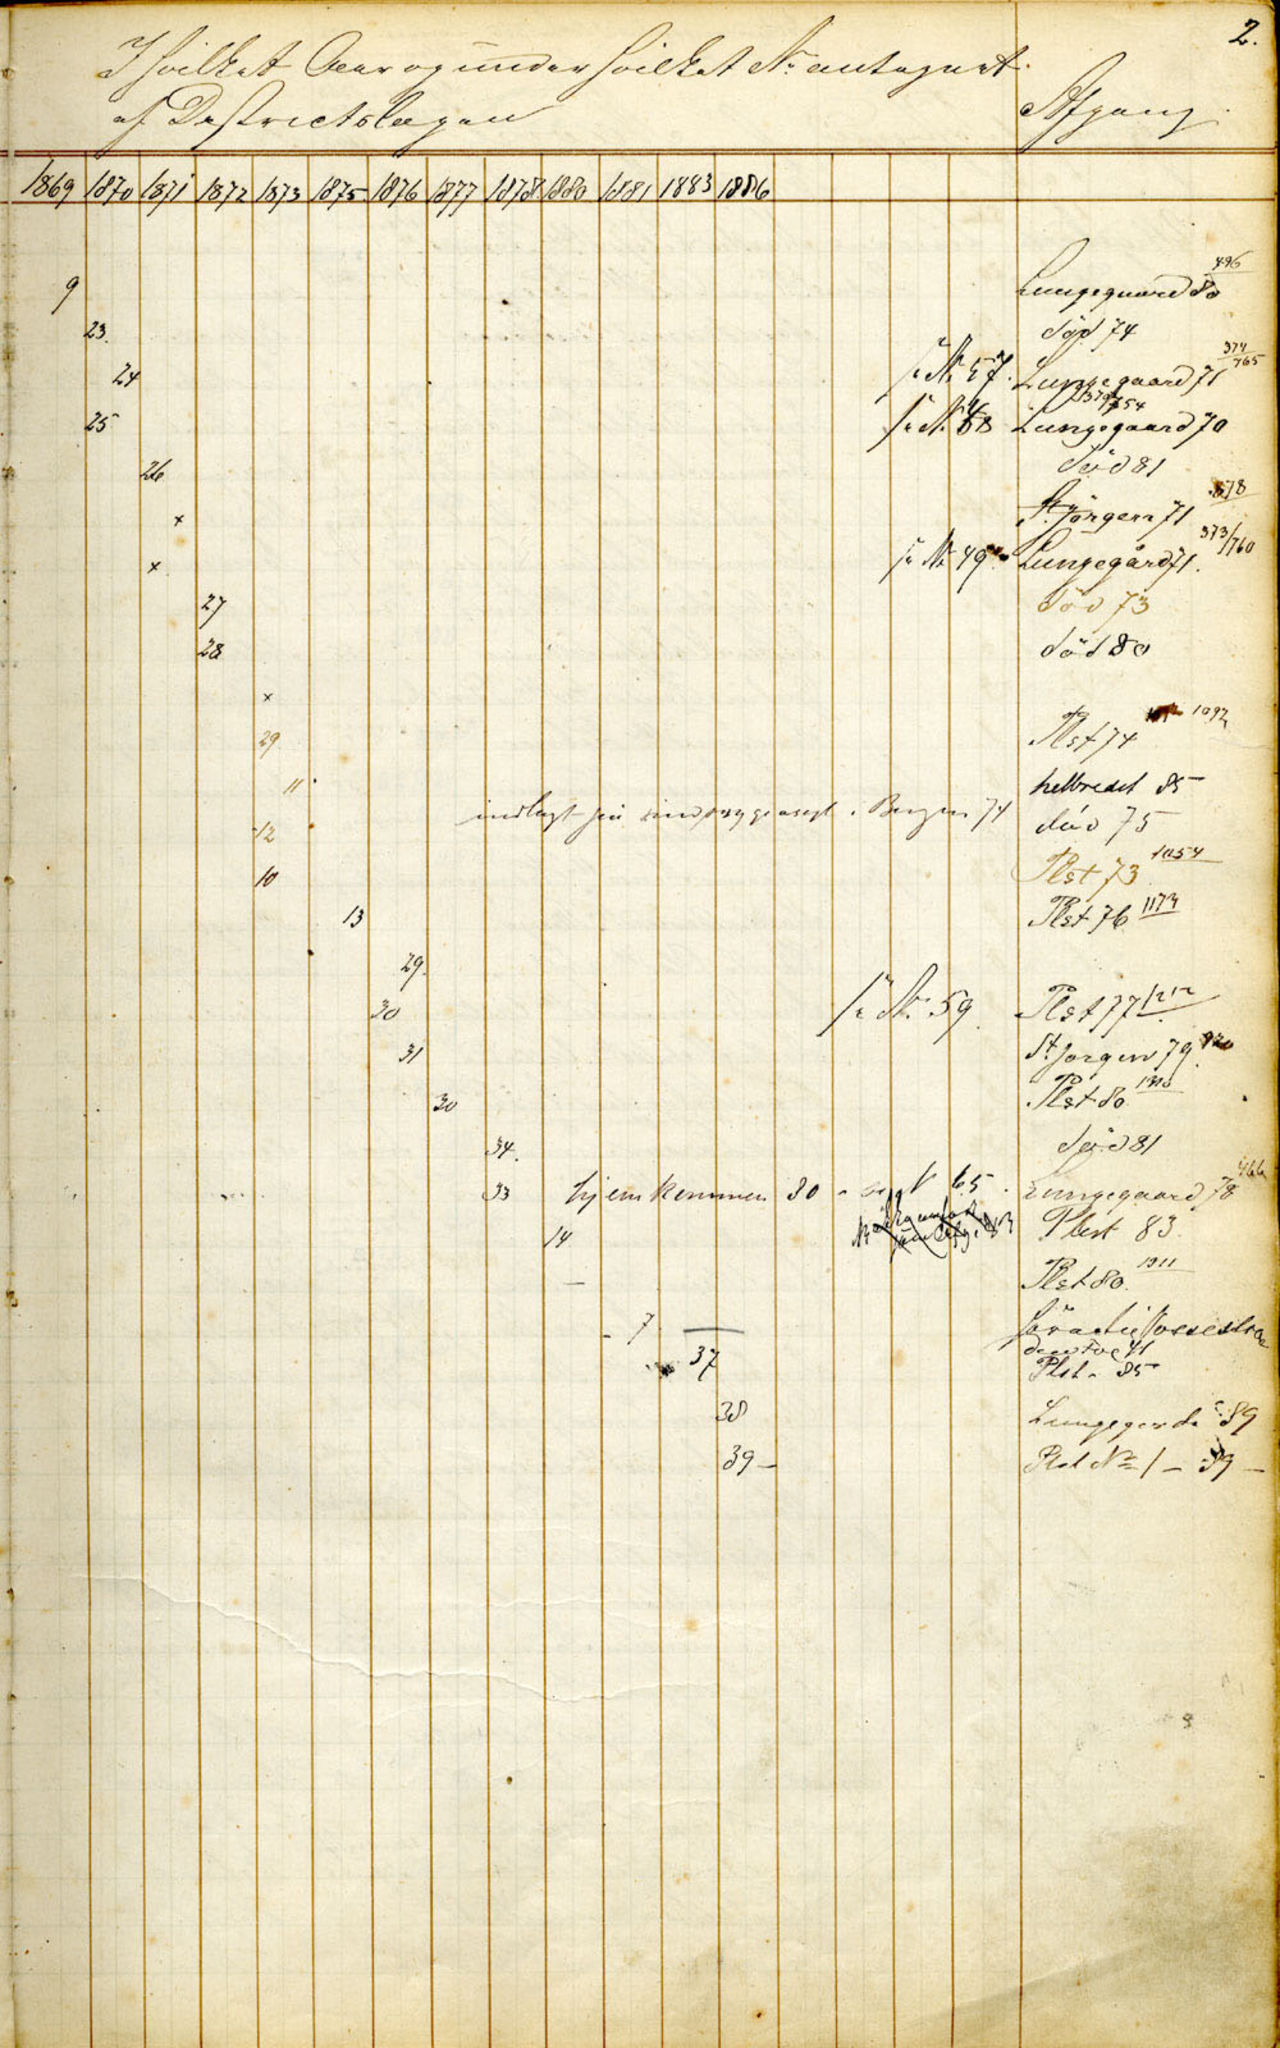 2.
I hvilket Aar og under hvilket No antegnet
af Districtslægen
Afgang.
1869 1870 1871 1872 1873 1875 1876 1877 1878 1880 1881 1883 1886
9 Lungegaard 80 496
23. död 74
24 se No 57. Lungegaard 71 374/765
25 se No 48 Lungegaard 70 379/754
26 död 81
x St. Jörgen 71 578
x se No 49 Lungegård 71. 373/760
27 död 73
28 död 80
x
29 Plst 74 1092
11 helbredet 85
indlagt på sindssygeasyl i Bergen 74
12 död 75
10 Plst 73 1054
13 Plst 76 1173
29.
30 se No. 59. Plst 77 1212
31 St. Jörgen 79.
30 Plst 80 1310
34. död 81
33 hjemkommen 80 - 65. Lungegaard 78 466
14 Plest 83.
— Plst 80. 1311
- 7 — Vossestranden
37 Plst. 85
38 Lungegarde 89
39 - Plst No 1 - 89 -